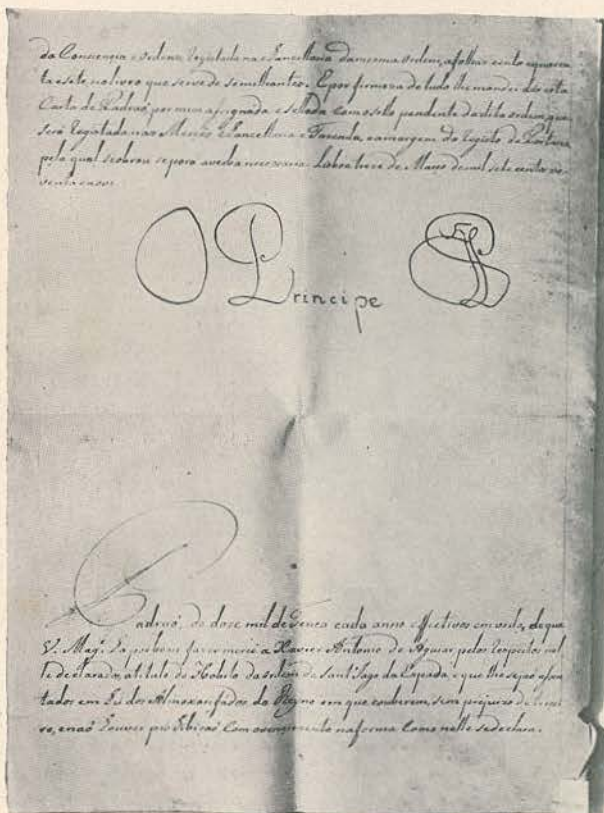 da Consciencia e ordens, registada na Chancellaria da mesma ordem, a folhas cento e quaren
ta e sete, no livro que serve de semelhantes. E por firmeza de tudo lhe mandei dar esta
Carta de Padraõ, por mim assignada e sellada com o sello pendente da dita ordem, que
será registada nas Mercês, Chancellaria e Fazenda, e a margem do registo da Portaria
pela qual se obrou se porá a verba necessaria. Lisboa treze de Março de mil sete centos no
venta e
O Principe
Padraõ, de doze mil de tença cada anno effectivos em vida, de que
V. Magᵉ. ha por bem fazer mercê a Xavier Antonio de Aguiar pelos respeitos nel
le declarados, a titulo do Habito da ordem de Sant'Iago da Espada, e que lhe serão assen
tados em hũ dos Almoxarifados do Reyno em que couberem, sem prejuizo de tercei
ro, e naõ houver prohibiçaõ com o vencimento na forma como nelle se declara.